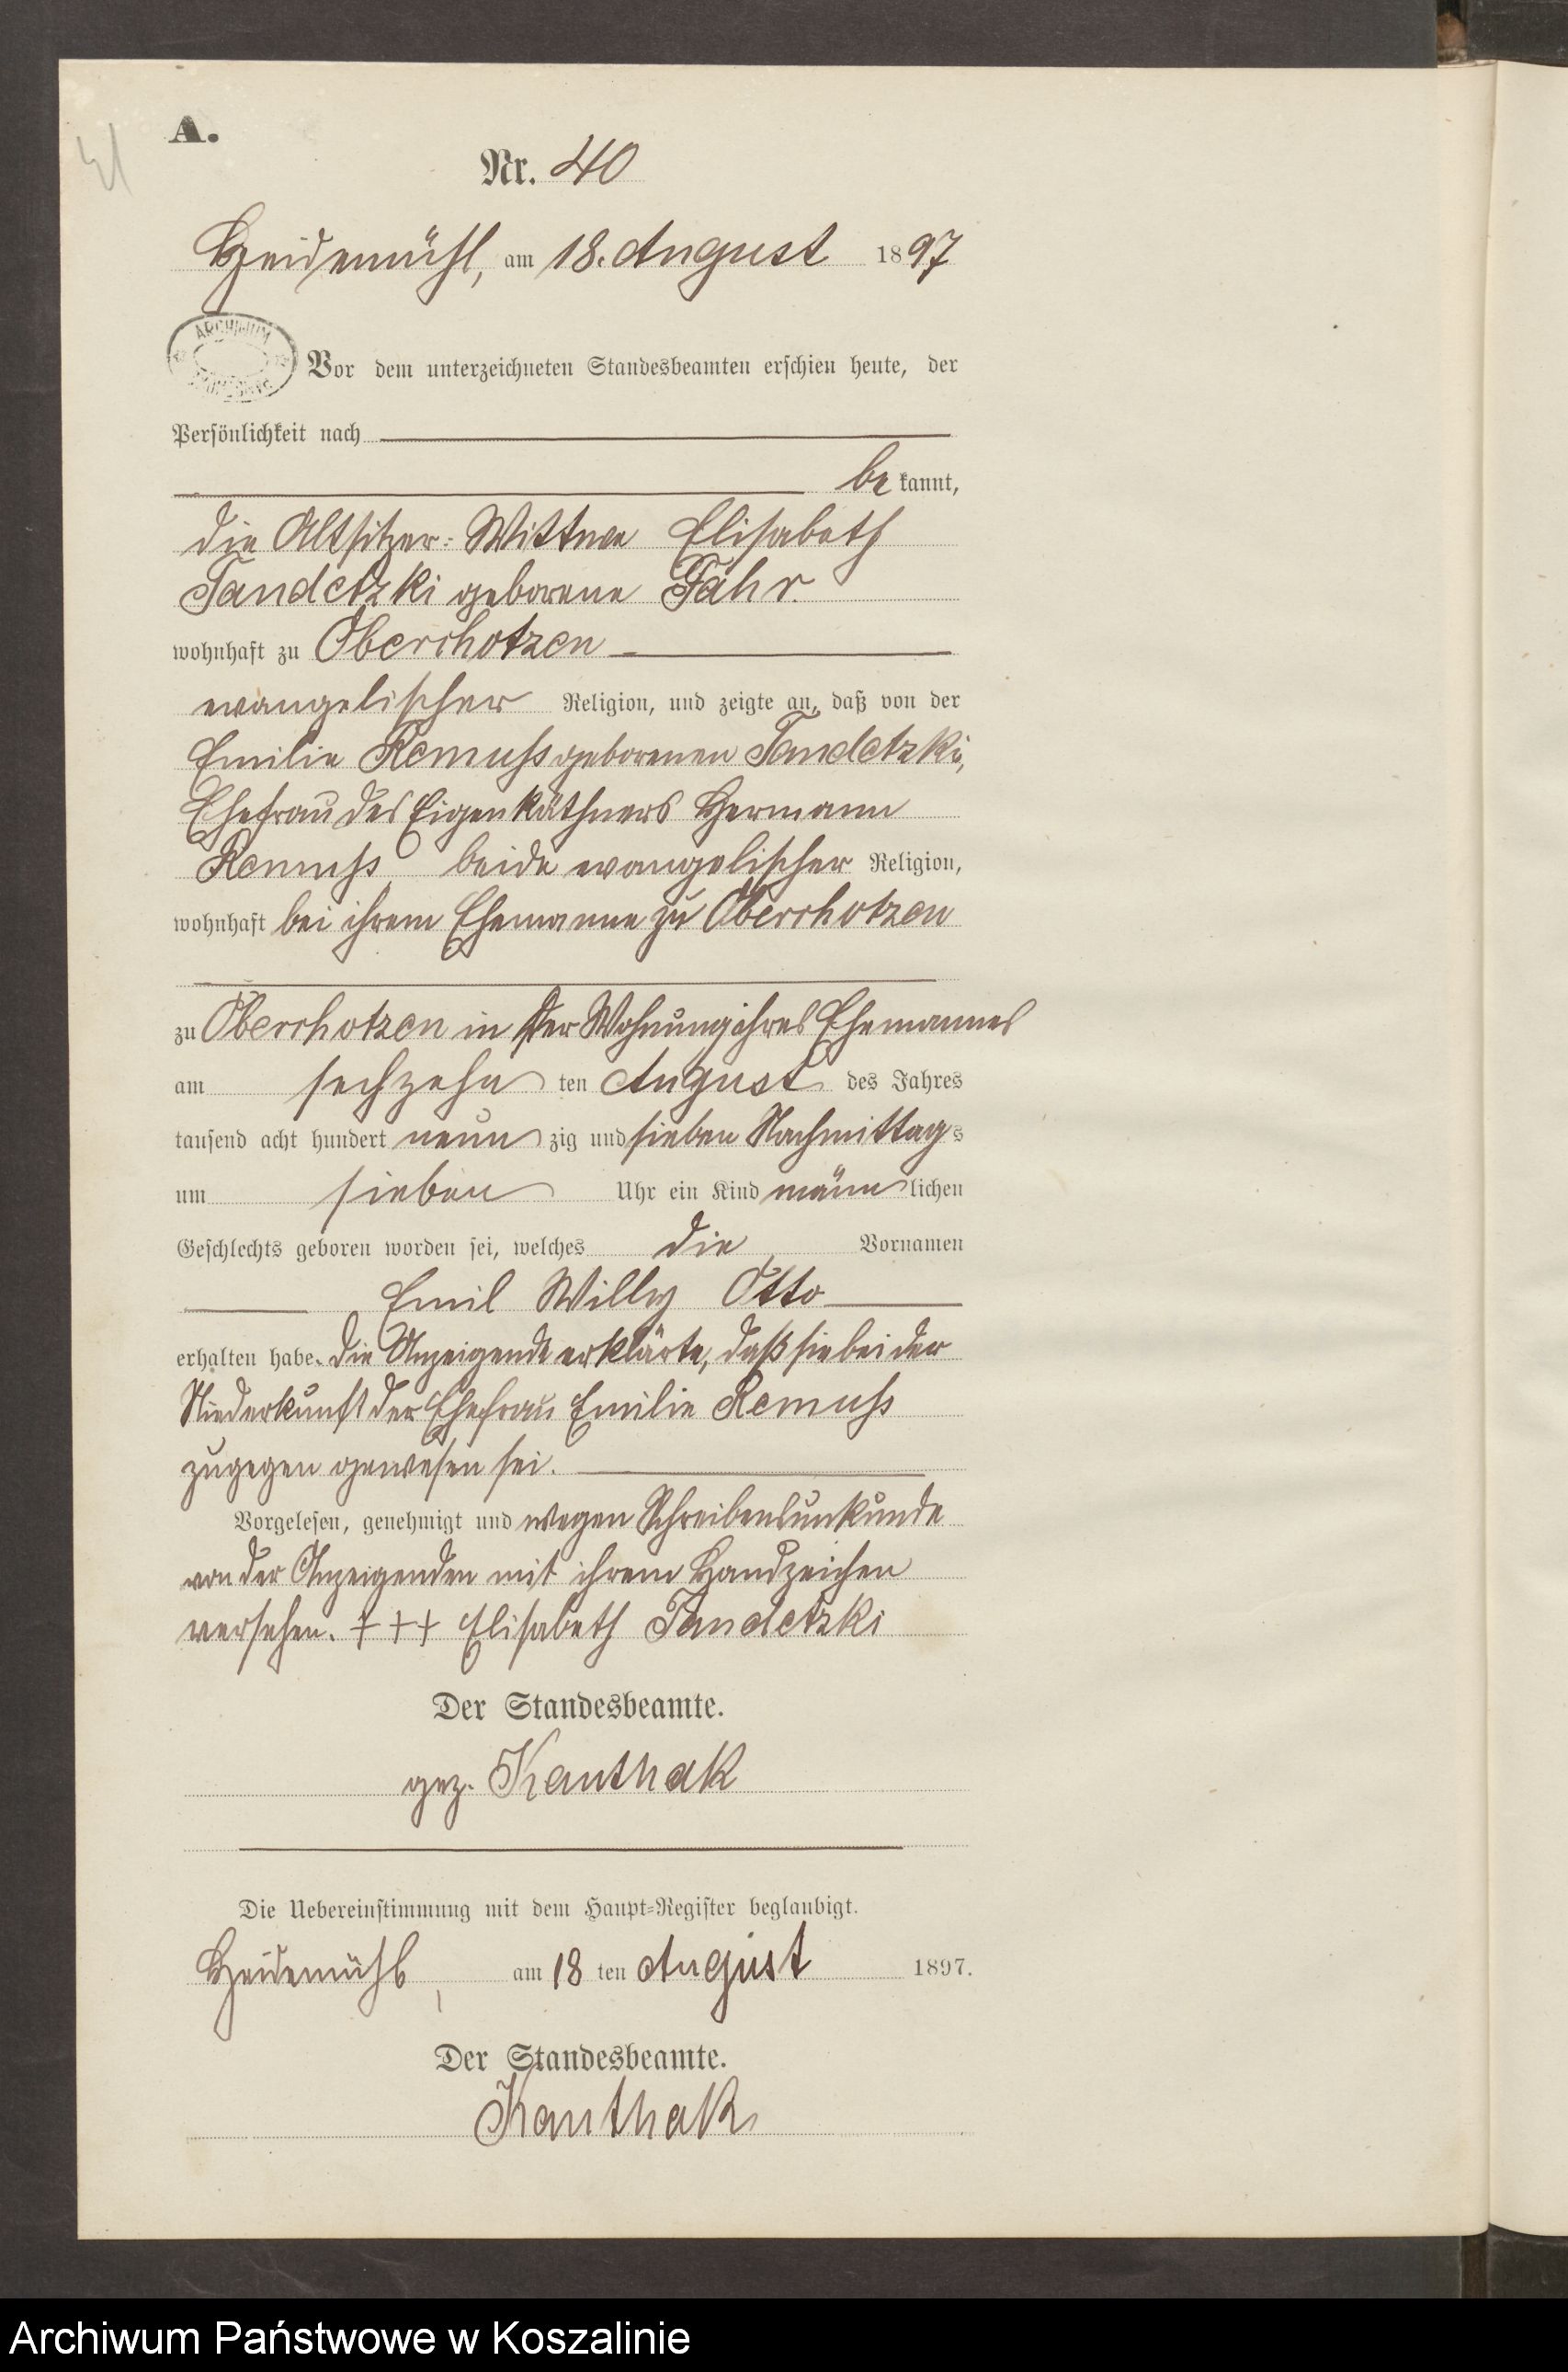 41
A.
Nr. 40
Heidemühl, am 18. August 1897
ARCHIWUM
Vor dem unterzeichneten Standesbeamten erschien heute, der
Persönlichkeit nach
be kannt,
die Altsitzer-Wittwe Elisabeth
Tandetzki geborene Fähr.
wohnhaft zu Oberchotzen
evangelischer Religion, und zeigte an, daß von der
Emilie Remuss geborenen Tandetzki,
Ehefrau des Eigenkäthners Hermann
Remuss beide evangelischer Religion,
wohnhaft bei ihrem Ehemanne zu Oberchotzen
zu Oberchotzen in der Wohnung ihres Ehemannes
am sechzehn ten August des Jahres
tausend acht hundert neun zig und sieben Nachmittags
um sieben Uhr ein Kind männlichen
Geschlechts geboren worden sei, welches die Vornamen
Emil Willy Otto
erhalten habe. Die Anzeigende erklärte, daß sie bei der
Niederkunft der Ehefrau Emilie Remuss
zugegen gewesen sei.
Vorgelesen, genehmigt und wegen Schreibensunkunde
von der Anzeigenden mit ihrem Handzeichen
versehen. +++ Elisabeth Tandetzki
Der Standesbeamte.
gez. Kanthak
Die Uebereinstimmung mit dem Haupt-Register beglaubigt.
Heidemühl, am 18 ten August 1897.
Der Standesbeamte.
Kanthak
Archiwum Państwowe w Koszalinie